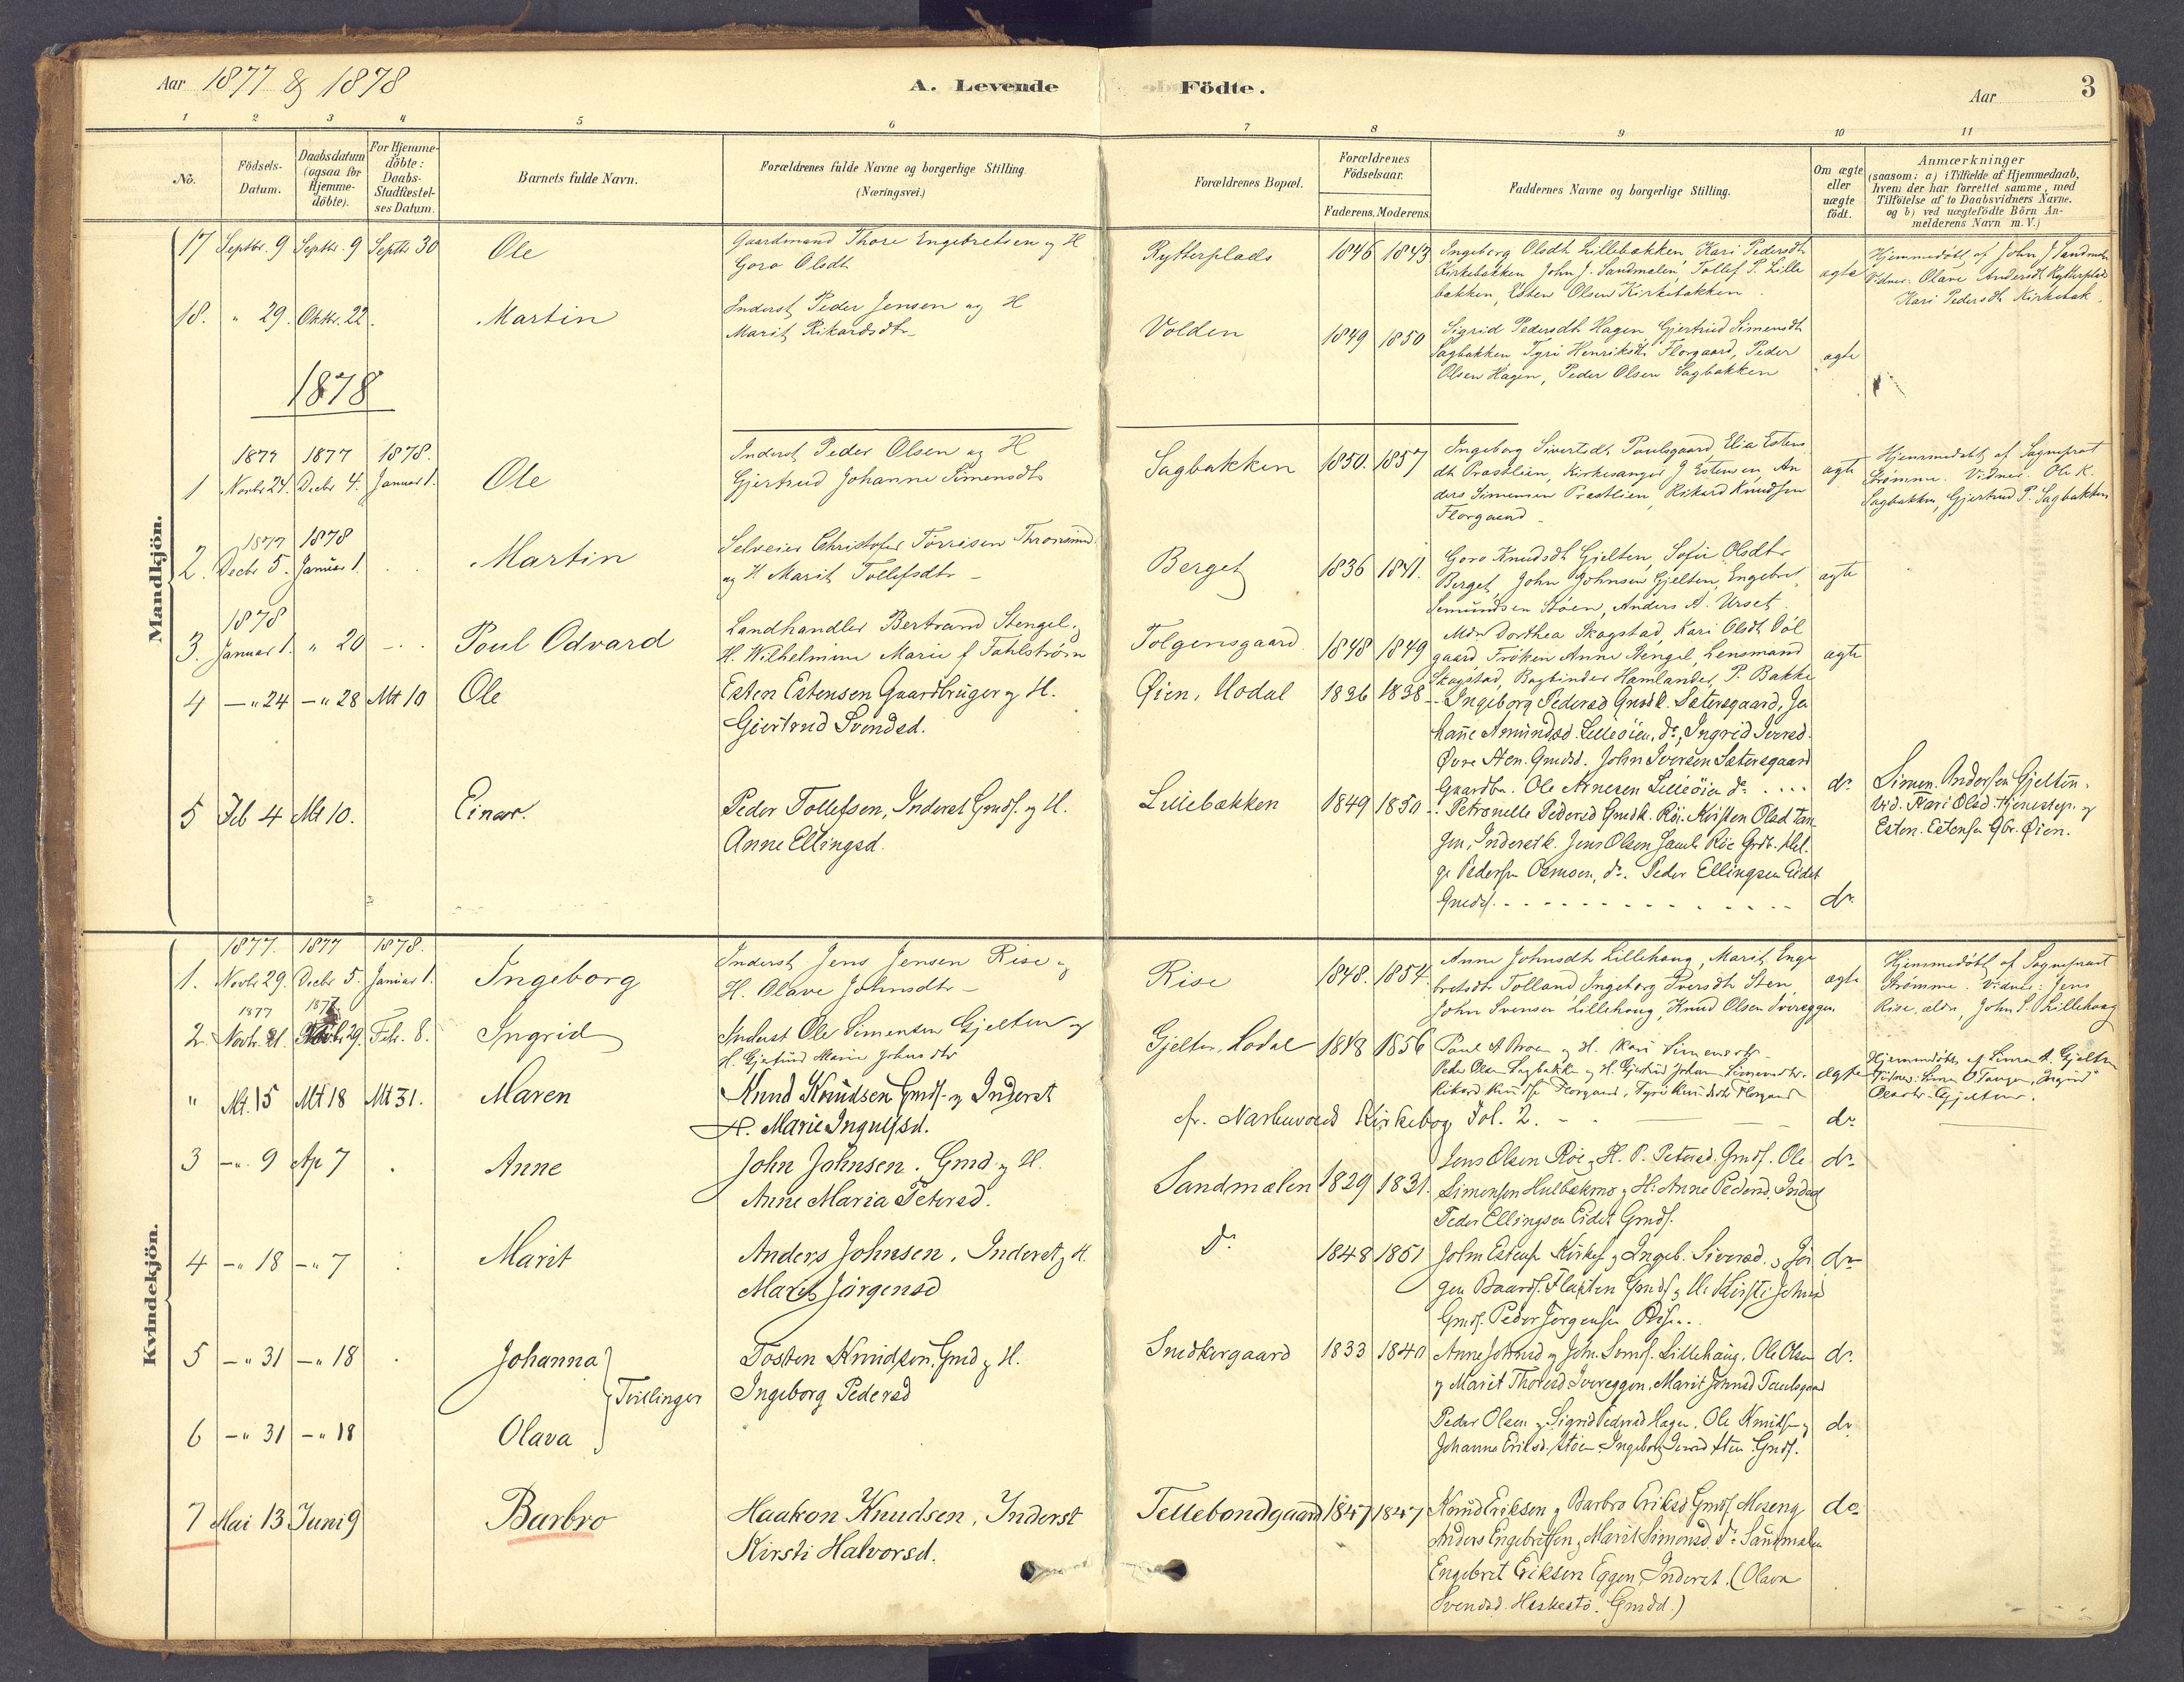 Aar 1877 & 1878
A. Levende Födte.
Aar 3
1 2 3 4 5 6 7 8 9 10 11
No.
Födsels-Datum.
Daabsdatum (ogsaa for Hjemme-döbte).
For Hjemme-döbte: Daabs-Stadfæstel-ses Datum.
Barnets fulde Navn.
Forældrenes fulde Navne og borgerlige Stilling.
(Næringsvei.)
Forældrenes Bopæl.
Forældrenes Födselsaar.
Faderens. Moderens.
Faddernes Navne og borgerlige Stilling.
Om ægte eller uægte födt.
Anmærkninger
(saasom: a) i Tilfælde af Hjemmedaab,
hvem der har forrettet samme, med
Tilföielse af to Daabsvidners Navne.
og b) ved uægtefödte Börn An-
melderens Navn m.V.)
Mandkjön.
17 Septbr. 9 Septbr. 9 Septbr 30 Ole
Gaardmand Thore Engebretsen og H
Goro Olsdtr
Rytterplads 1846 1843
Ingeborg Olsdtr Lillebakken, Kari Pedersdtr
Kirkebakken John J. Sandmælen, Tollef P. Lille
bakken, Esten Olsen Kirkebakken
ægte
Hjemmedöbt af John J Sandmæl
Vidner: Olave Andersdtr Rytterplads
Kari Pedersdtr Kirkebak.
18. " 29. Oktbr. 22. Martin
Inderst Peder Jensen og H
Marit Rikardsdtr
Volden 1849 1850
Sigrid Pedersdtr Hagen, Gjertrud Simensdtr
Sagbakken Tyri Henriksdtr Florgaard, Peder
Olsen Hagen, Peder Olsen Sagbakken
ægte
1878
1877 1877 1878.
1 Novbr 24. Decbr 4. Januar 1. Ole
Inderst Peder Olsen og H
Gjertrud Johanne Simensdtr
Sagbakken 1850. 1857
Ingeborg Sivertsdtr Poulsgaard, Elia Estens
dtr Præstlien, Kirkesanger J Estensen An
ders Simensen Præstlien, Rikard Knudsen
Florgaard
ægte
Hjemmedöbt af Sognepræst
Strømme. Vidner: Ole K.
Sagbakken, Gjertrud P. Sagbakken
1877 1878
2. Decbr 5. Januar 1. Martin
Selveier Christofer Torrisen
og H Marit Tollefsdtr
Berget 1836 1841.
Goro Knudsdtr Gjelten, Sofie Olsdtr
Berget, John Johnsen Gjelten, Engebret
Semundsen Støen, Anders A. Urset
ægte
1878
3. Januar 1. " 20 Poul Odvard
Landhandler Bertrand Stengel og
H. Wilhelmine Marie f Fahlstrøm
Tolgensgaard 1848 1849
Mdm Dorthea Skogstad, Kari Olsdtr Vol
gaard Frøken Anna Stengel, Lensmand
Skogstad, Bogbinder Hamlander, P. Bakke
ægte
4 —"24 —"28 Mt 10 Ole
Esten Estensen Gaardbruger og H.
Gjertrud Svendsd.
Øien, Hodal 1836 1838
Ingeborg Pedersd Gmdk. Sætersgaard, Jo
hanne Amundsd. Lilleöien, do, Ingrid Iversd.
Øvre Sten Gmdsd. John Iversen Sætersgaard
Gaardbr. Ole Arnesen Lilleöien do
do
Simen Andersen Gjelten.
Vid. Kari Olsd. Tjenestep. og
Esten Estensen Gbr. Øien.
5 Feb 4 Mt 10. Einar.
Peder Tollefsen, Inderst Gmds. og H.
Anne Ellingsd.
Lillebakken 1849 1850
Petronelle Pedersd Gmdk. Röe. Kirsten Olsd Tan
gen, Inderstk. Jens Olsen Röe Grdb. Hel
ge Pedersen Osmoen, do. Peder Ellingsen Eidet
Gmds.
do
Kvindekjön.
1877. 1877 1878.
1. Novbr 29. Decbr 5. Januar 1. Ingeborg
Inderst Jens Jensen Rise og
H. Olave Johnsdtr
Rise 1848. 1854
Anne Johnsdtr Lillehoug, Marit Enge
bretsdtr Tolland, Ingeborg Iversdtr Sten
John Svensen Lillehoug, Knud Olsen Ivereggen
ægte
Hjemmedöbt af Sognepræst
Strømme. Vidner: Jens
Rise, ældre, John S. Lillehoug
1877 1877
2. Novbr. 21. 29. Febr. 8. Ingrid
Inderst Ole Simensen Gjelten og
H. Gjertrud Marie Johnsdtr
Gjelten, Hodal 1848 1856
Paul A Moen og H. Kari Simensdtr
Peder Olsen Sagbakken og H. Gjertrud Johanne Simensdtr.
Rikard Knudsen Florgaard, Tyri Henriksdtr Florgaard
ægte
Hjemmedöbt af Simen A. Gjelten
Vidner: Simen O Tangen, Ingrid
Olsdtr Gjelten.
" Mt. 15 Mt 18 Mt 31. Maren
Knud Knudsen Gmds. og Inderst
H. Marie Ingulfsd.
fr. Narbuvold Kirkebog Fol. 2.
do
3 —". 9 Ap 7 Anne
John Johnsen. Gmd. og H.
Anne Maria Petersd.
Sandmælen 1829 1831.
Jens Olsen Röe og H. P. Petersd. Gmds. Ole
Simensen Hulbakmo og H. Anne Pedersd. Inderst
Peder Ellingsen Eidet Gmds.
do
4 —" 18 —" 7 Marit
Anders Johnsen. Inderst og H.
Marit Jörgensd
do 1848 1851
John Estens. Kirkes. og Ingeb. Siversd. og Jör
gen Baards. Flaxten Gmds og H. Kirsti Johnsd
Gmds. Peder Jörgensen
do
5 —" 31 —" 18 Johanna
Tosten Knudsen, Gmd og H.
Tvillinger
Ingeborg Pedersd
Snedkergaard 1833 1840
Anne Johnsd og John Svends. Lillehaug. Ole Olsen
og Marit Thoresd Ivereggen. Marit Johnsd Paulsgaard
do.
6 —" 31 —" 18 Olava
Peder Olsen og Sigrid Pedersd Hagen. Ole Knudsen og
Johanna Eriksd. Støen. Ingeborg Iversd Sten Gmds.
do
7 Mai 13 Juni 9 Barbro
Haakon Knudsen, Inderst
Kirsti Halvorsd.
Tellebondgaard 1847 1847
Knud Eriksen og Barbro Eriksd Gmds Moseng
Anders Engebretsen og Marit Simensd. do Sandmælen
Engebret Eriksen Eggen, Inderst. (Olava
Svendsd. Gmdd.)
do